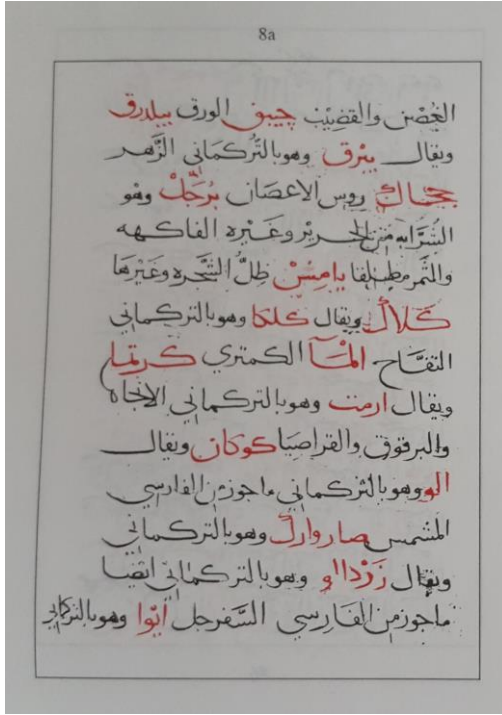 8a
الغُصْن والقضِيْب چيبق الورق ييلدرق
ويقال يبْرق وهو بالتُركمَاني الزَّهر
ججاك روس الاغصَان بُرجَكْ وهو
الشرَّابه من الحَرير وغَيْره الفاكهه
والثمر مطلقا يامِشْ ظِلُّ الشَّجره وغَيْرهَا
كَلاك ويقال كلكا وهو بالتركماني
التفَّاح المَا الكمثري كرتما
ويقال ارمت وهو بالتركماني الانجاه
والبرقوق والقراصِيَا كوكان ويقال
الو وهو بالتركماني ماجوز من الفارسي
المشمس صاروارك وهو بالتركماني
ويقال زَرْدالو وهو بالتركماني ايْضَا
ماجوز من الفَارِسي السَّفرجل ايْوا وهو بالتركماني